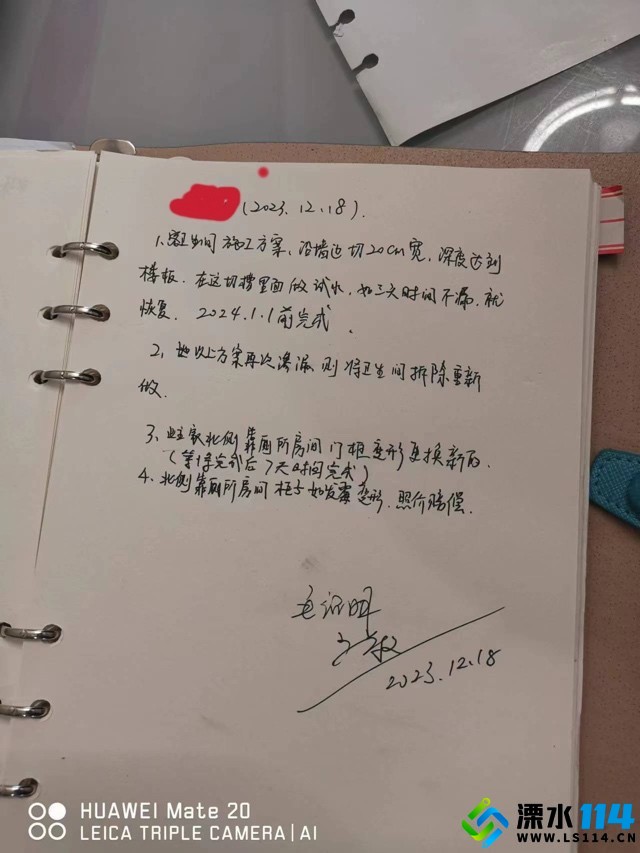 (2023.12.18).
1、卫生间施工方案、沿墙边切20cm宽、深度达到
楼板、在这切槽里面做试水，如三天时间不漏、就
恢复、2024.1.1前完成.
2、如以上方案再次渗漏、则将卫生间拆除重新
做.
3、业主家北侧靠厕所房间门框变形更换新的.
(等1将完成后7天时间完成)
4、北侧靠厕所房间柜子如发霉变形、照价赔偿.
2023.12.18
HUAWEI Mate 20
LEICA TRIPLE CAMERA | AI
溧水114
WWW.LS114.CN